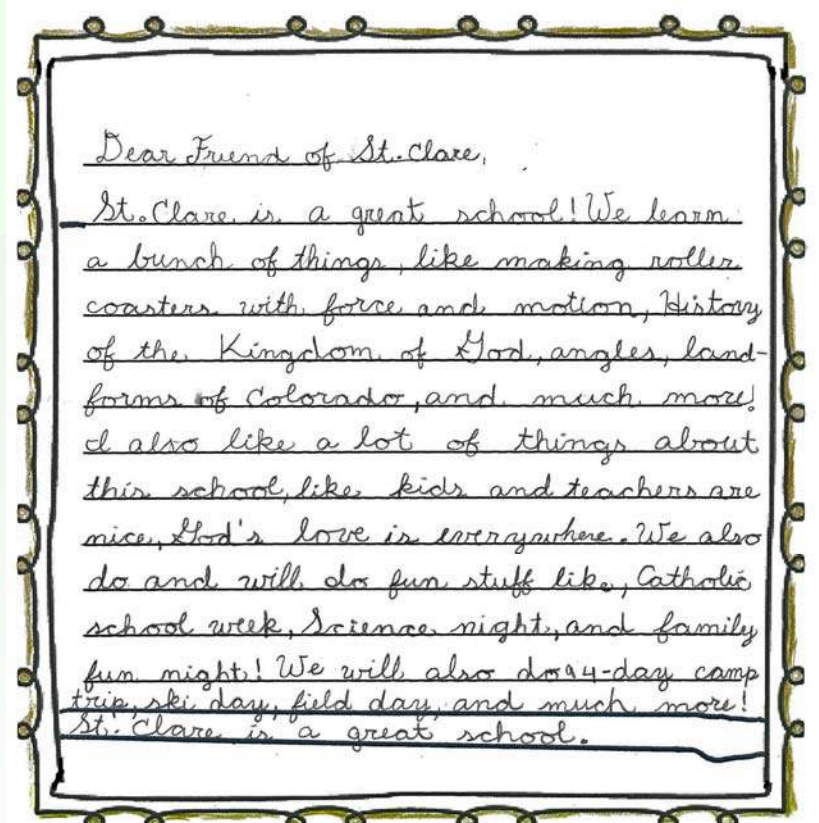 Dear Friend of St. Clare,
St. Clare is a great school! We learn
a bunch of things, like making roller
coasters with force and motion, History
of the Kingdom of God, angles, land-
forms of Colorado, and much more!
I also like a lot of things about
this school, like kids and teachers are
nice, God's love is everywhere. We also
do and will do fun stuff like, Catholic
school week, Science night, and family
fun night! We will also do a 4-day camp
trip, ski day, field day, and much more!
St. Clare is a great school.